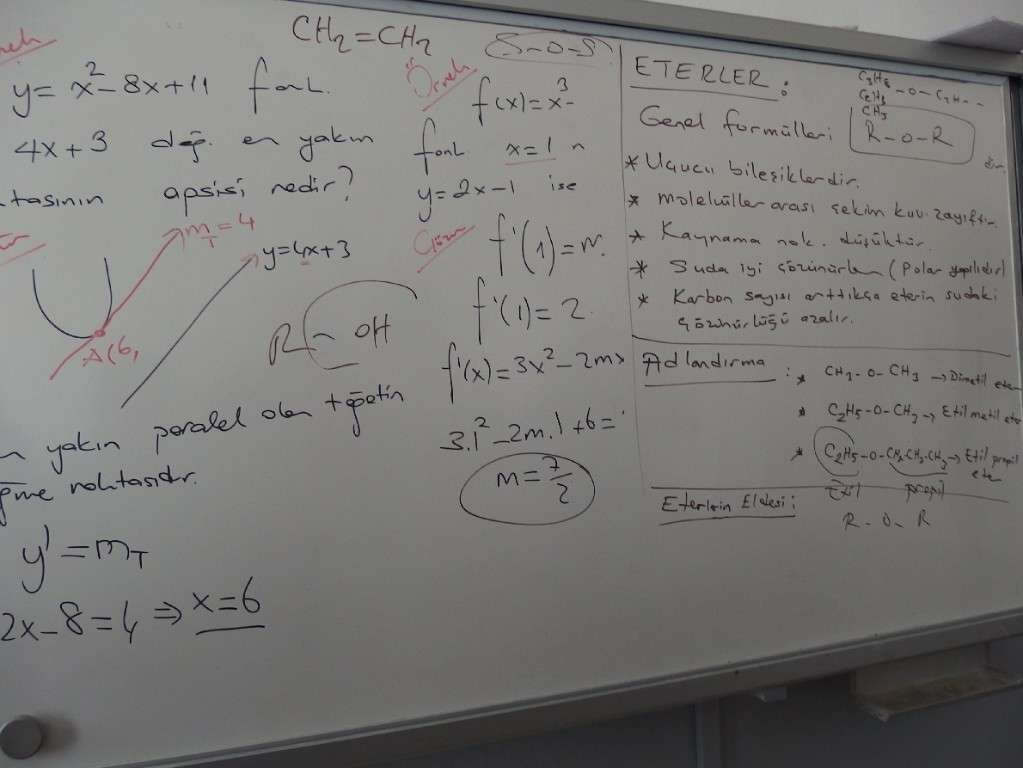 CH₂=CH₂
Örnek
y= x²-8x+11 fonk.
4x+3 doğ. en yakın
apsisi nedir?
m_T=4
y=4x+3
A(6,
R-OH
yakın paralel olan teğetin
noktasıdır.
y'=m_T
2x-8=4 ⇒ x=6
S-O-S
Örnek
f(x)=x³-
fonk. x=1 n
y=2x-1 ise
Çözüm
f'(1)=m.
f'(1)=2.
f'(x)=3x²-2mx
3.1²-2m.1+6=
m=7/2
ETERLER :
C₂H₅
CH₃
Genel formülleri
R-O-R
dir.
* Uçucu bileşiklerdir.
* moleküller arası çekim kuv. zayıftır.
* Kaynama nok. düşüktür.
* Suda iyi çözünürler (Polar yapılıdır)
* Karbon sayısı arttıkça eterin sudaki
çözünürlüğü azalır.
Adlandırma :
* CH₃-O-CH₃ → Dimetil eter
* C₂H₅-O-CH₃ → Etil metil eter
* C₂H₅-O-CH₂CH₂CH₃ → Etil propil
eter
Etil propil
Eterlerin Eldesi:
R-O-R